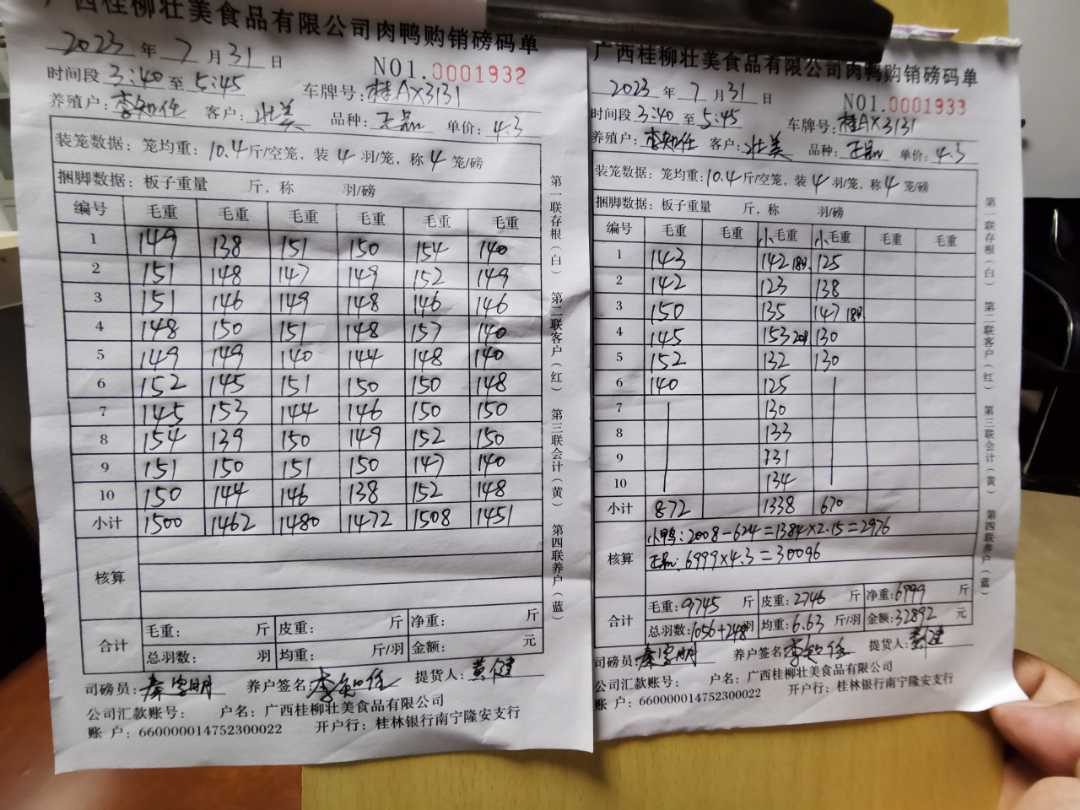 广西桂柳壮美食品有限公司肉鸭购销磅码单
2023 年 7 月 31 日 NO1.0001932
时间段 3:40 至 5:45 车牌号: 桂AX3131
养殖户: 李知任 客户: 壮美 品种: 正品 单价: 4.3
装笼数据: 笼均重: 10.4 斤/空笼, 装 4 羽/笼, 称 4 笼/磅
捆脚数据: 板子重量 斤, 称 羽/磅
编号 毛重 毛重 毛重 毛重 毛重 毛重
1 149 138 151 150 154 140
2 151 148 147 149 152 149
3 151 146 149 148 146 146
4 148 150 151 148 157 140
5 149 149 140 144 148 140
6 152 145 151 150 150 148
7 145 153 144 146 150 150
8 154 139 150 149 152 150
9 151 150 151 150 147 140
10 150 144 146 138 152 148
小计 1500 1462 1480 1472 1508 1451
核算
合计 毛重: 斤 皮重: 斤 净重: 斤
总羽数: 羽 均重: 斤/羽 金额: 元
司磅员: 养户签名: 李知任 提货人: 黄健
公司汇款账号: 户名: 广西桂柳壮美食品有限公司
账 户: 660000014752300022 开户行: 桂林银行南宁隆安支行
第一联存根(白) 第二联客户(红) 第三联会计(黄) 第四联养户(蓝)
广西桂柳壮美食品有限公司肉鸭购销磅码单
2023 年 7 月 31 日 NO1.0001933
时间段 3:40 至 5:45 车牌号: 桂AX3131
养殖户: 李知任 客户: 壮美 品种: 正品 单价: 4.3
装笼数据: 笼均重: 10.4 斤/空笼, 装 4 羽/笼, 称 4 笼/磅
捆脚数据: 板子重量 斤, 称 羽/磅
编号 毛重 毛重 小毛重 小毛重 毛重 毛重
1 143 142 18羽 125
2 142 123 138
3 150 135 147 18羽
4 145 153 20羽 130
5 152 132 130
6 140 125
7 130
8 133
9 131
10 134
小计 872 1338 670
核算 小鸭: 2008-624=1384×2.15=2976
正品: 6999×4.3=30096
合计 毛重: 9745 斤 皮重: 2746 斤 净重: 6999 斤
总羽数: 1056+248羽 均重: 6.63 斤/羽 金额: 32892 元
司磅员: 养户签名: 李知任 提货人: 黄健
公司汇款账号: 户名: 广西桂柳壮美食品有限公司
账 户: 660000014752300022 开户行: 桂林银行南宁隆安支行
第一联存根(白) 第二联客户(红) 第三联会计(黄) 第四联养户(蓝)